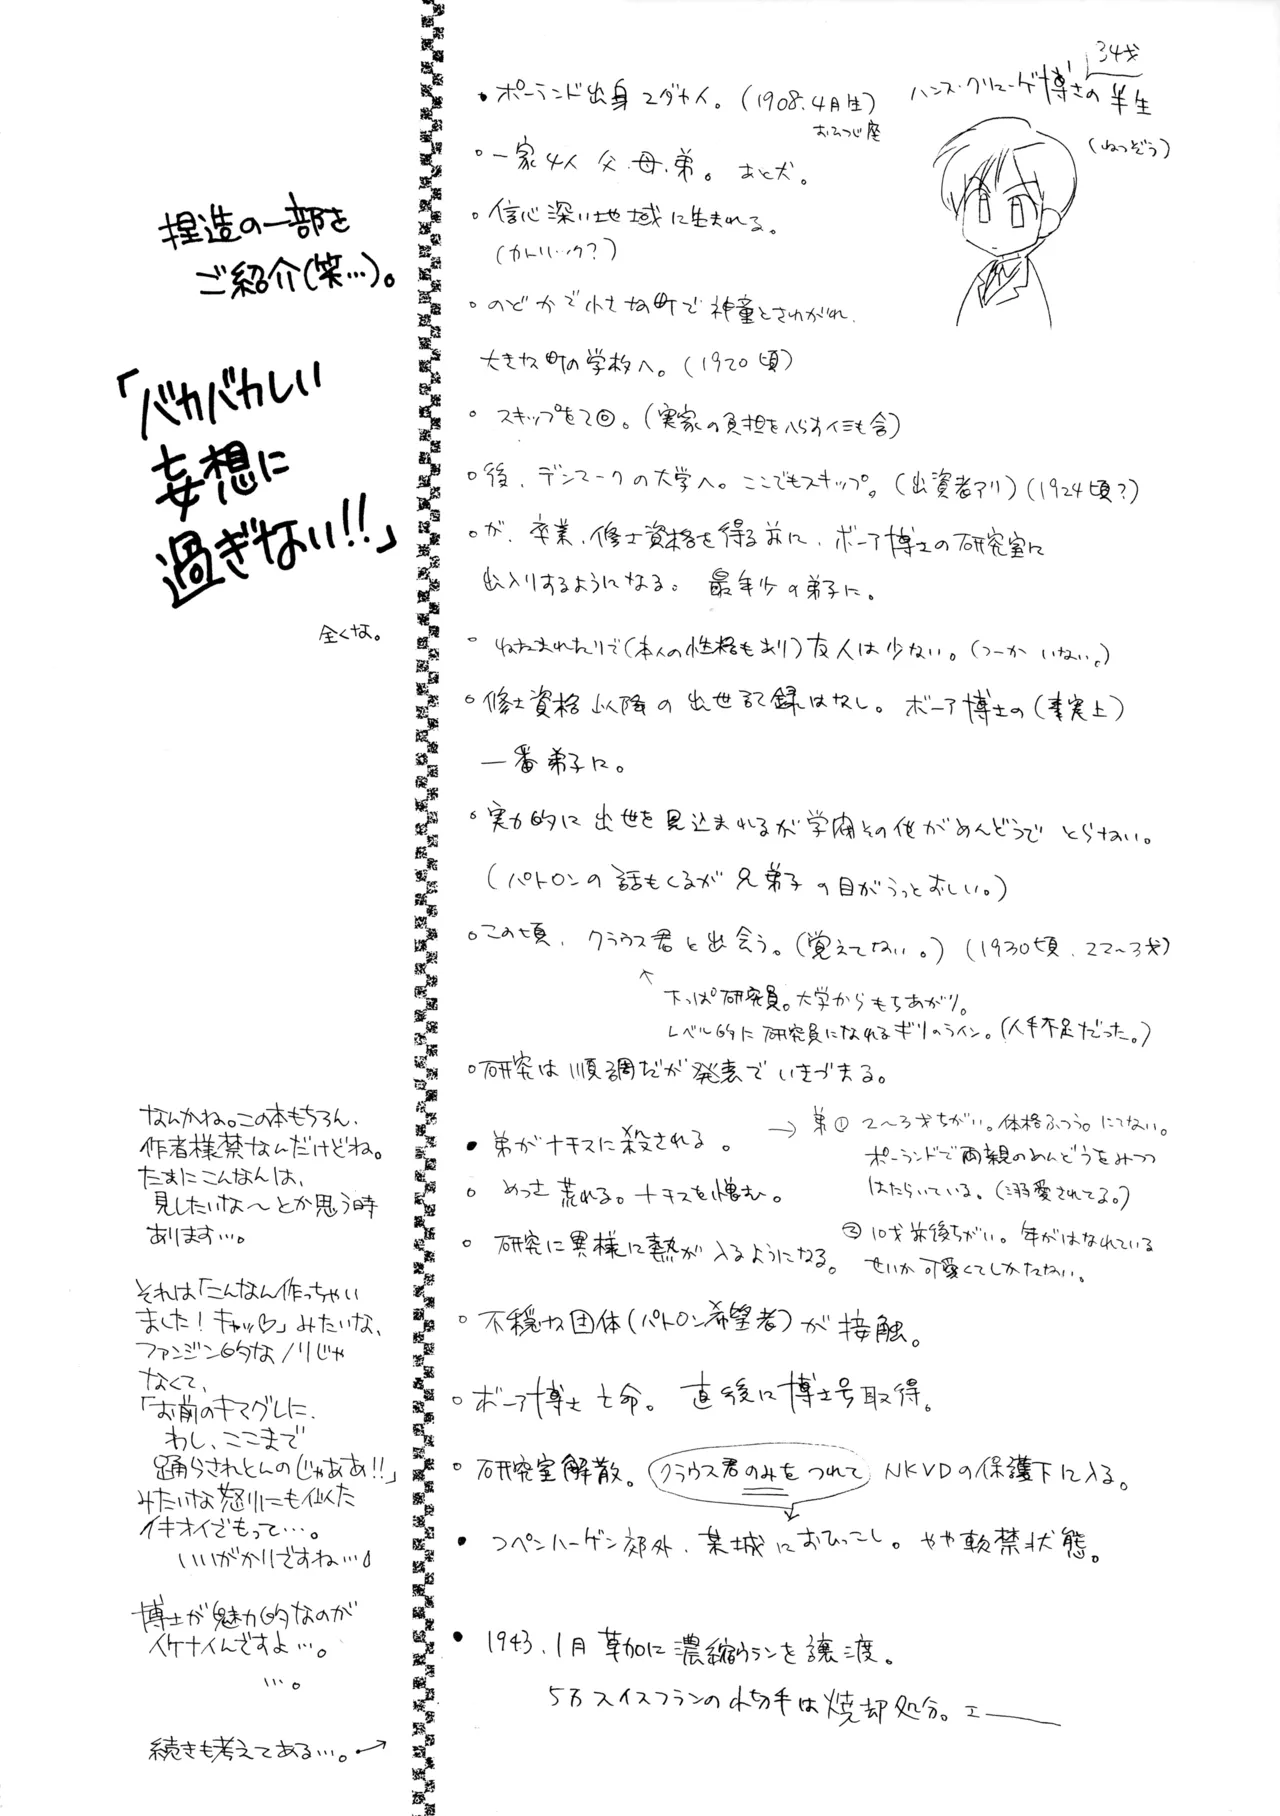 34才
ハンス・クリューゲ博士の半生
(ねつぞう)
・ポーランド出身ユダヤ人。(1908.4月生)
おひつじ座
・一家4人 父.母.弟。あと犬。
・信心深い地域に生まれる。
(カトリック?)
・のどかで小さな町で神童とさわがれ、
大きな町の学校へ。(1920頃)
・スキップを2回。(実家の負担をへらすイミも含)
・後、デンマークの大学へ。ここでもスキップ。(出資者アリ)(1924頃?)
・が、卒業、修士資格を得る前に、ボーア博士の研究室に
出入りするようになる。最年少の弟子に。
・ねたまれたりで(本人の性格もあり)友人は少ない。(つーか いない。)
・修士資格以降の出世記録はなし。ボーア博士の(事実上)
一番弟子に。
・実力的に出世を見込まれるが学閥その他がめんどうでとらない。
(パトロンの話もくるが兄弟子の目がうっとおしい。)
・この頃、クラウス君と出会う。(覚えてない。)(1930頃、22〜3才)
↑
下っぱ研究員。大学からもちあがり。
レベル的に研究員になれるギリのライン。(人手不足だった。)
・研究は順調だが発表でいきづまる。
・弟がナチスに殺される。
→ 弟① 2〜3才ちがい。体格ふつう。にてない。
ポーランドで両親のめんどうをみつつ
はたらいている。(溺愛されてる。)
・めっさ荒れる。ナチスを憎む。
②10才前後ちがい。年がはなれている
せいか可愛くてしかたない。
・研究に異様に熱が入るようになる。
・不穏な団体(パトロン希望者)が接触。
・ボーア博士亡命。直後に博士号取得。
・研究室解散。クラウス君のみをつれてNKVDの保護下に入る。
・コペンハーゲン郊外、某城におひっこし。やや軟禁状態。
・1943.1月 草加に濃縮ウランを譲渡。
5万スイスフランの小切手は焼却処分。
捏造の一部を
ご紹介(笑…)。
「バカバカしい
妄想に
過ぎない!!」
全くな。
なんかね。この本もちろん、
作者様禁なんだけどね。
たまにこんなんは、
見したいな〜とか思う時
あります…。
それは「こんなん作っちゃい
ました!キャッ♡」みたいな、
ファンジン的なノリじゃ
なくて、
「お前のキマグレに、
わし、ここまで
踊らされとんのじゃああ!!」
みたいな怒りにも似た
イキオイでもって…。
いいがかりですね…
博士が魅力的なのが
イケナイんですよ…。
…。
続きも考えてある…。→